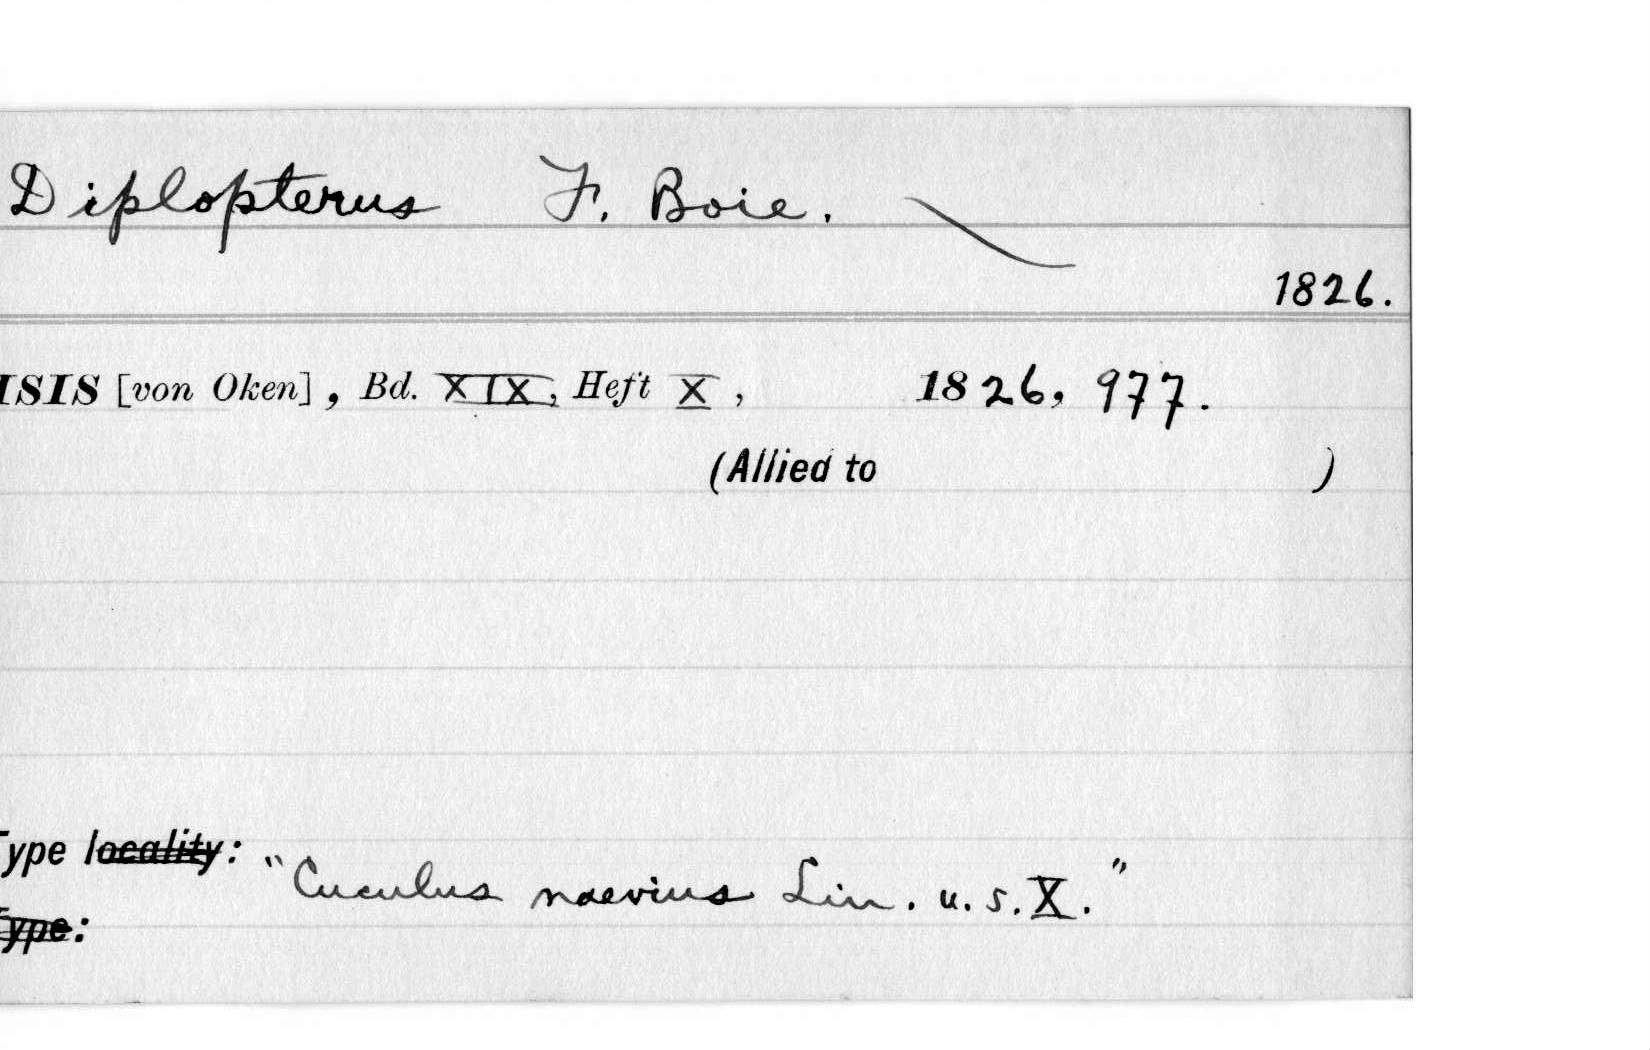 Diplopterus F. Boie.
1826.
ISIS [von Oken], Bd. XIX, Heft X, 1826, 977.
(Allied to )
Type locality:
"Cuculus naevius Lin. u. s. X."
Type: